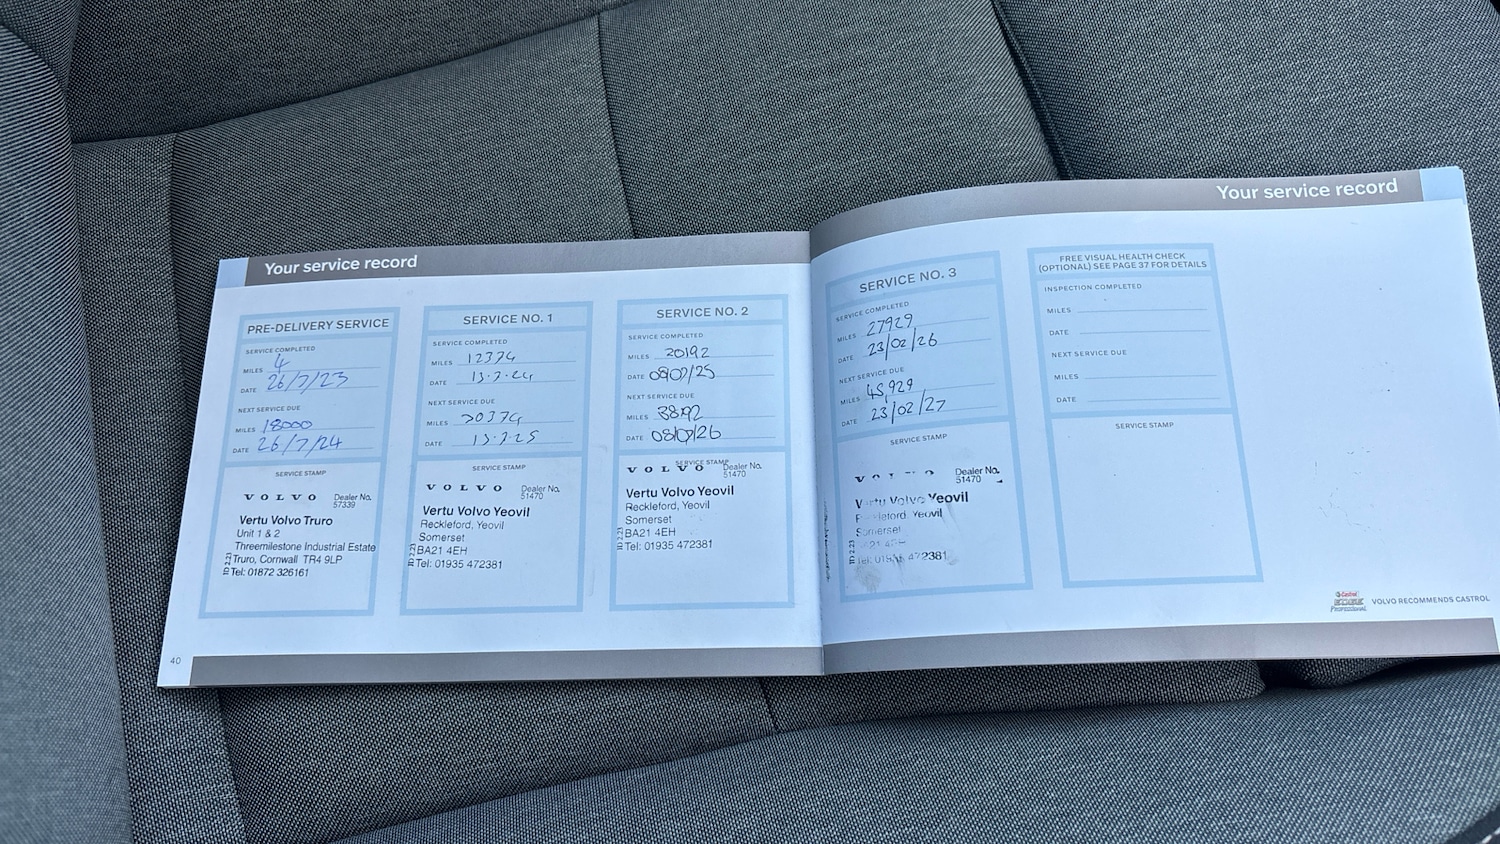 Your service record
PRE-DELIVERY SERVICE
SERVICE COMPLETED
MILES 4
DATE 26/7/23
NEXT SERVICE DUE
MILES 18000
DATE 26/7/24
SERVICE STAMP
VOLVO Dealer No.
57339
Vertu Volvo Truro
Unit 1 & 2
Threemilestone Industrial Estate
Truro, Cornwall TR4 9LP
Tel: 01872 326161
ID 2.23
SERVICE NO. 1
SERVICE COMPLETED
MILES 12374
DATE
NEXT SERVICE DUE
MILES 30374
DATE
SERVICE STAMP
VOLVO Dealer No.
51470
Vertu Volvo Yeovil
Reckleford, Yeovil
Somerset
BA21 4EH
Tel: 01935 472381
ID 2.23
SERVICE NO. 2
SERVICE COMPLETED
MILES 20192
DATE
NEXT SERVICE DUE
MILES 38192
DATE
SERVICE STAMP
VOLVO Dealer No.
51470
Vertu Volvo Yeovil
Reckleford, Yeovil
Somerset
BA21 4EH
Tel: 01935 472381
ID 2.23
40
Your service record
SERVICE NO. 3
SERVICE COMPLETED
MILES 27929
DATE 23/02/26
NEXT SERVICE DUE
MILES 45,929
DATE 23/02/27
SERVICE STAMP
Dealer No.
51470
Vertu Volvo Yeovil
Yeovil
Somerset
Tel: 01935 472381
ID 2.23
FREE VISUAL HEALTH CHECK
(OPTIONAL) SEE PAGE 37 FOR DETAILS
INSPECTION COMPLETED
MILES
DATE
NEXT SERVICE DUE
MILES
DATE
SERVICE STAMP
Castrol
EDGE
PROFESSIONAL
VOLVO RECOMMENDS CASTROL